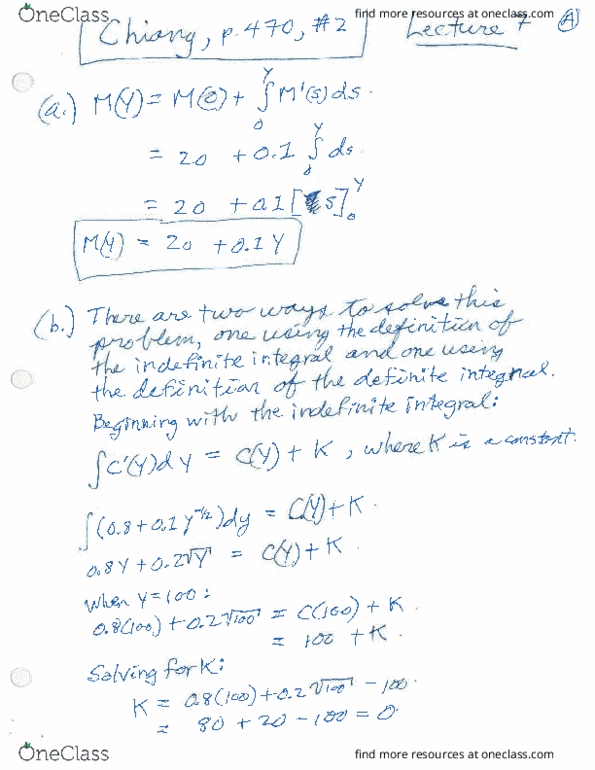 OneClass
find more resources at oneclass.com
Chiang, p.470, #2
Lecture 7
A
(a.) M(Y) = M(0) + ∫₀^Y M'(s) ds.
= 20 + 0.1 ∫₀^Y ds.
= 20 + 0.1 [s]₀^Y
M(Y) = 20 + 0.1Y
(b.) There are two ways to solve this
problem, one using the definition of
the indefinite integral and one using
the definition of the definite integral.
Beginning with the indefinite integral:
∫C'(Y)dY = C(Y) + K, where K is a constant.
∫(0.8 + 0.1Y^-1/2)dy = C(Y) + K.
0.8Y + 0.2√Y = C(Y) + K.
When Y=100:
0.8(100) + 0.2√100 = C(100) + K
= 100 + K.
Solving for K:
K = 0.8(100) + 0.2√100 - 100.
= 80 + 20 - 100 = 0.
OneClass
find more resources at oneclass.com